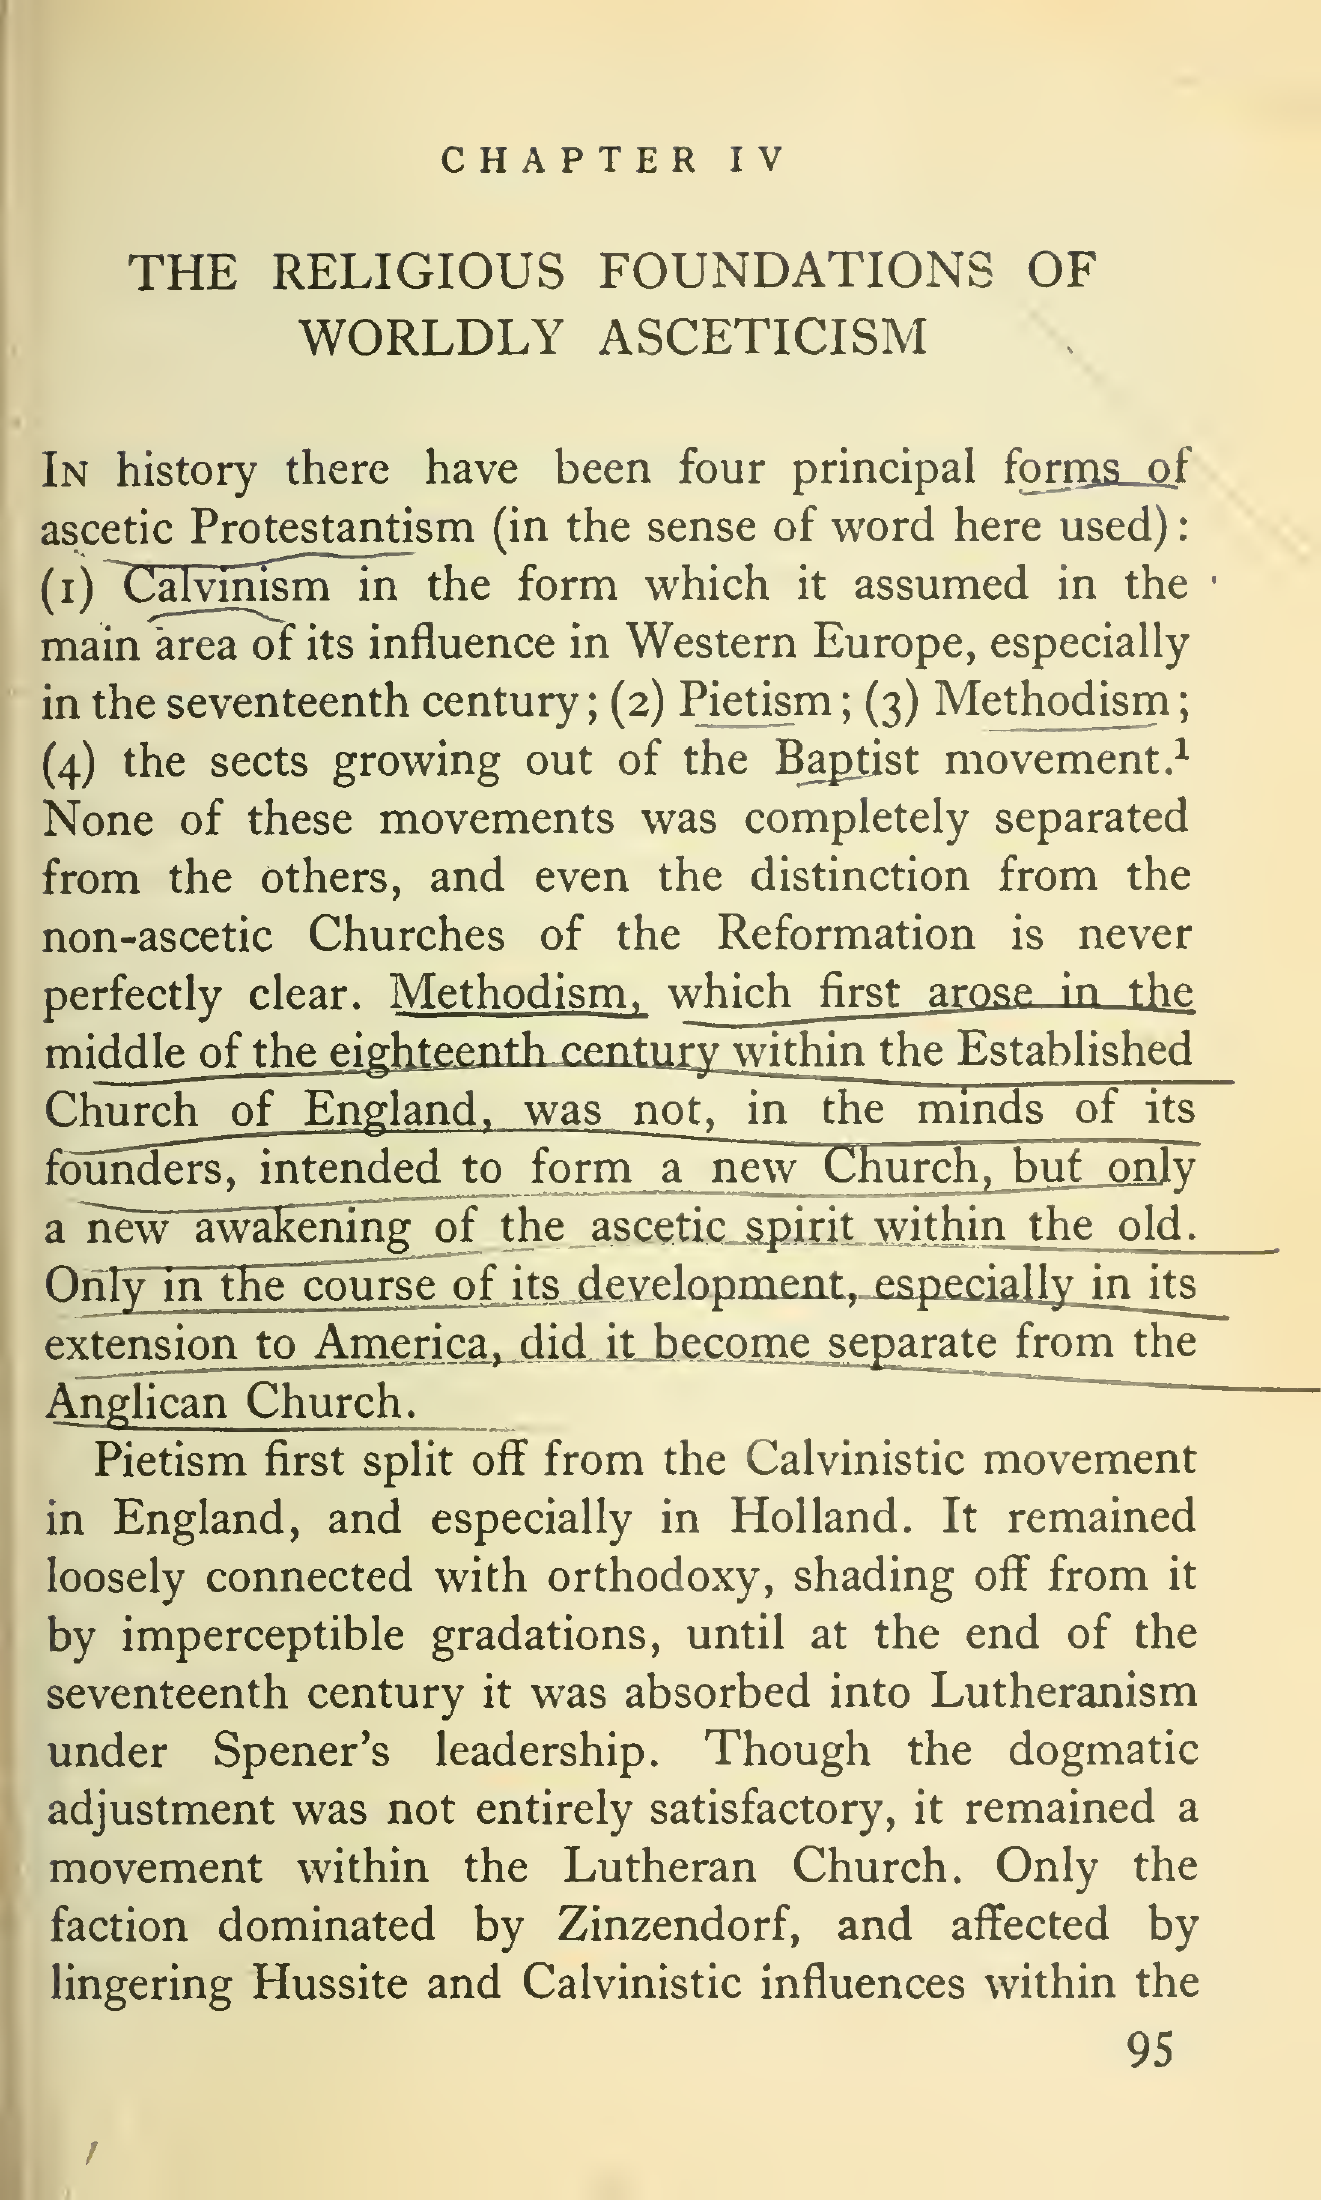 CHAPTER IV
THE RELIGIOUS FOUNDATIONS OF
WORLDLY ASCETICISM
IN history there have been four principal forms of
ascetic Protestantism (in the sense of word here used):
(1) Calvinism in the form which it assumed in the
main area of its influence in Western Europe, especially
in the seventeenth century; (2) Pietism; (3) Methodism;
(4) the sects growing out of the Baptist movement.¹
None of these movements was completely separated
from the others, and even the distinction from the
non-ascetic Churches of the Reformation is never
perfectly clear. Methodism, which first arose in the
middle of the eighteenth century within the Established
Church of England, was not, in the minds of its
founders, intended to form a new Church, but only
a new awakening of the ascetic spirit within the old.
Only in the course of its development, especially in its
extension to America, did it become separate from the
Anglican Church.
Pietism first split off from the Calvinistic movement
in England, and especially in Holland. It remained
loosely connected with orthodoxy, shading off from it
by imperceptible gradations, until at the end of the
seventeenth century it was absorbed into Lutheranism
under Spener's leadership. Though the dogmatic
adjustment was not entirely satisfactory, it remained a
movement within the Lutheran Church. Only the
faction dominated by Zinzendorf, and affected by
lingering Hussite and Calvinistic influences within the
95